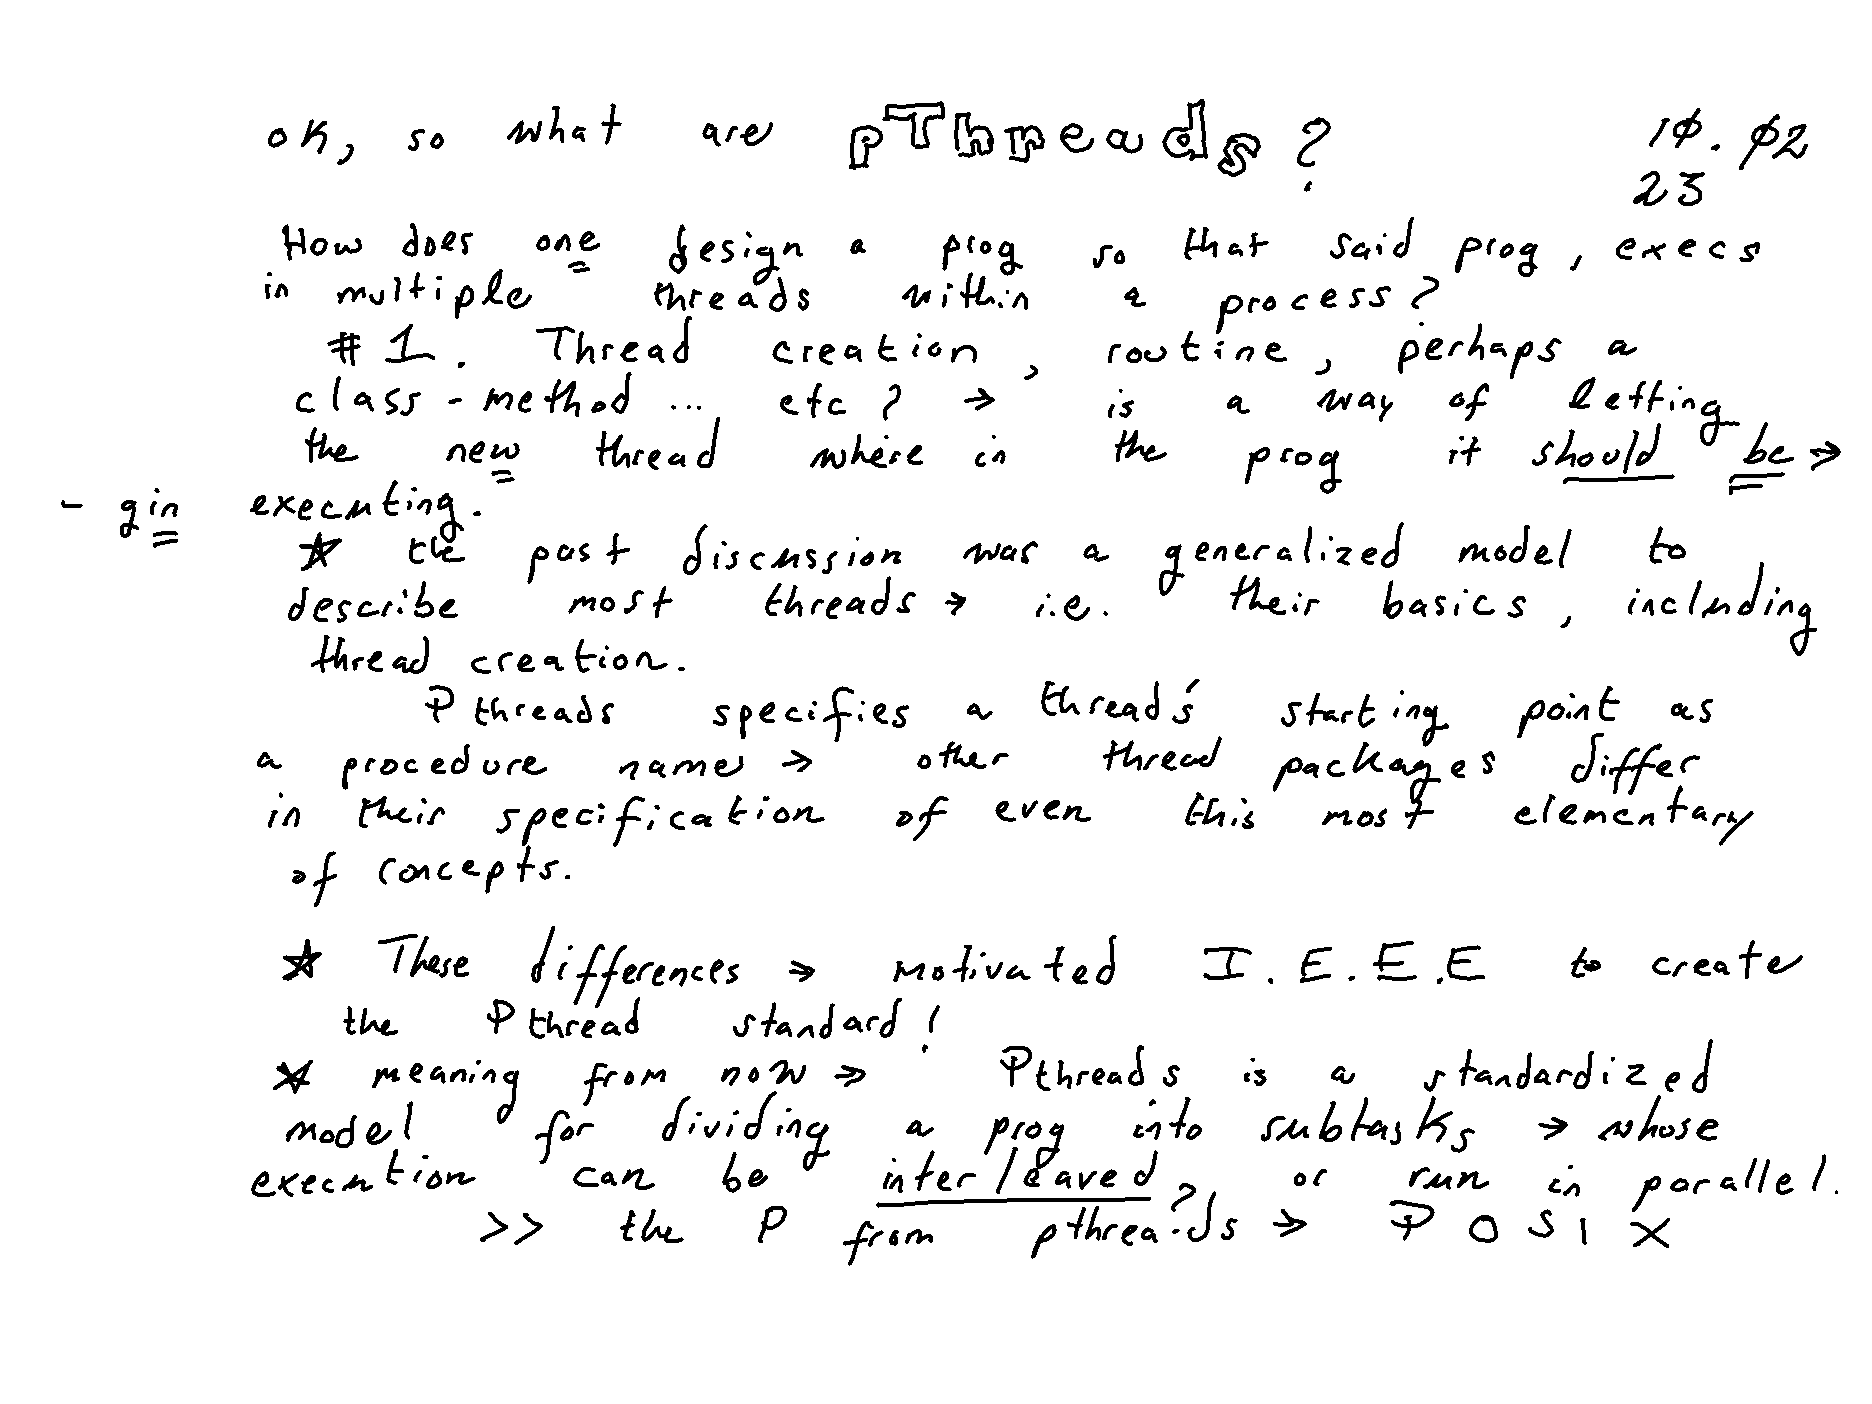 ok, so what are pThreads? 10.02
23
How does one design a prog so that said prog, execs
in multiple threads within a process?
#1. Thread creation, routine, perhaps a
class-method ... etc? → is a way of letting
the new thread where in the prog it should be →
- gin executing.
☆ the past discussion was a generalized model to
describe most threads → i.e. their basics, including
thread creation.
Pthreads specifies a thread's starting point as
a procedure name → other thread packages differ
in their specification of even this most elementary
of concepts.
☆ These differences → motivated I.E.E.E to create
the Pthread standard!
☆ meaning from now → Pthreads is a standardized
model for dividing a prog into subtasks → whose
execution can be interleaved? or run in parallel.
>> the P from pthreads → POSIX